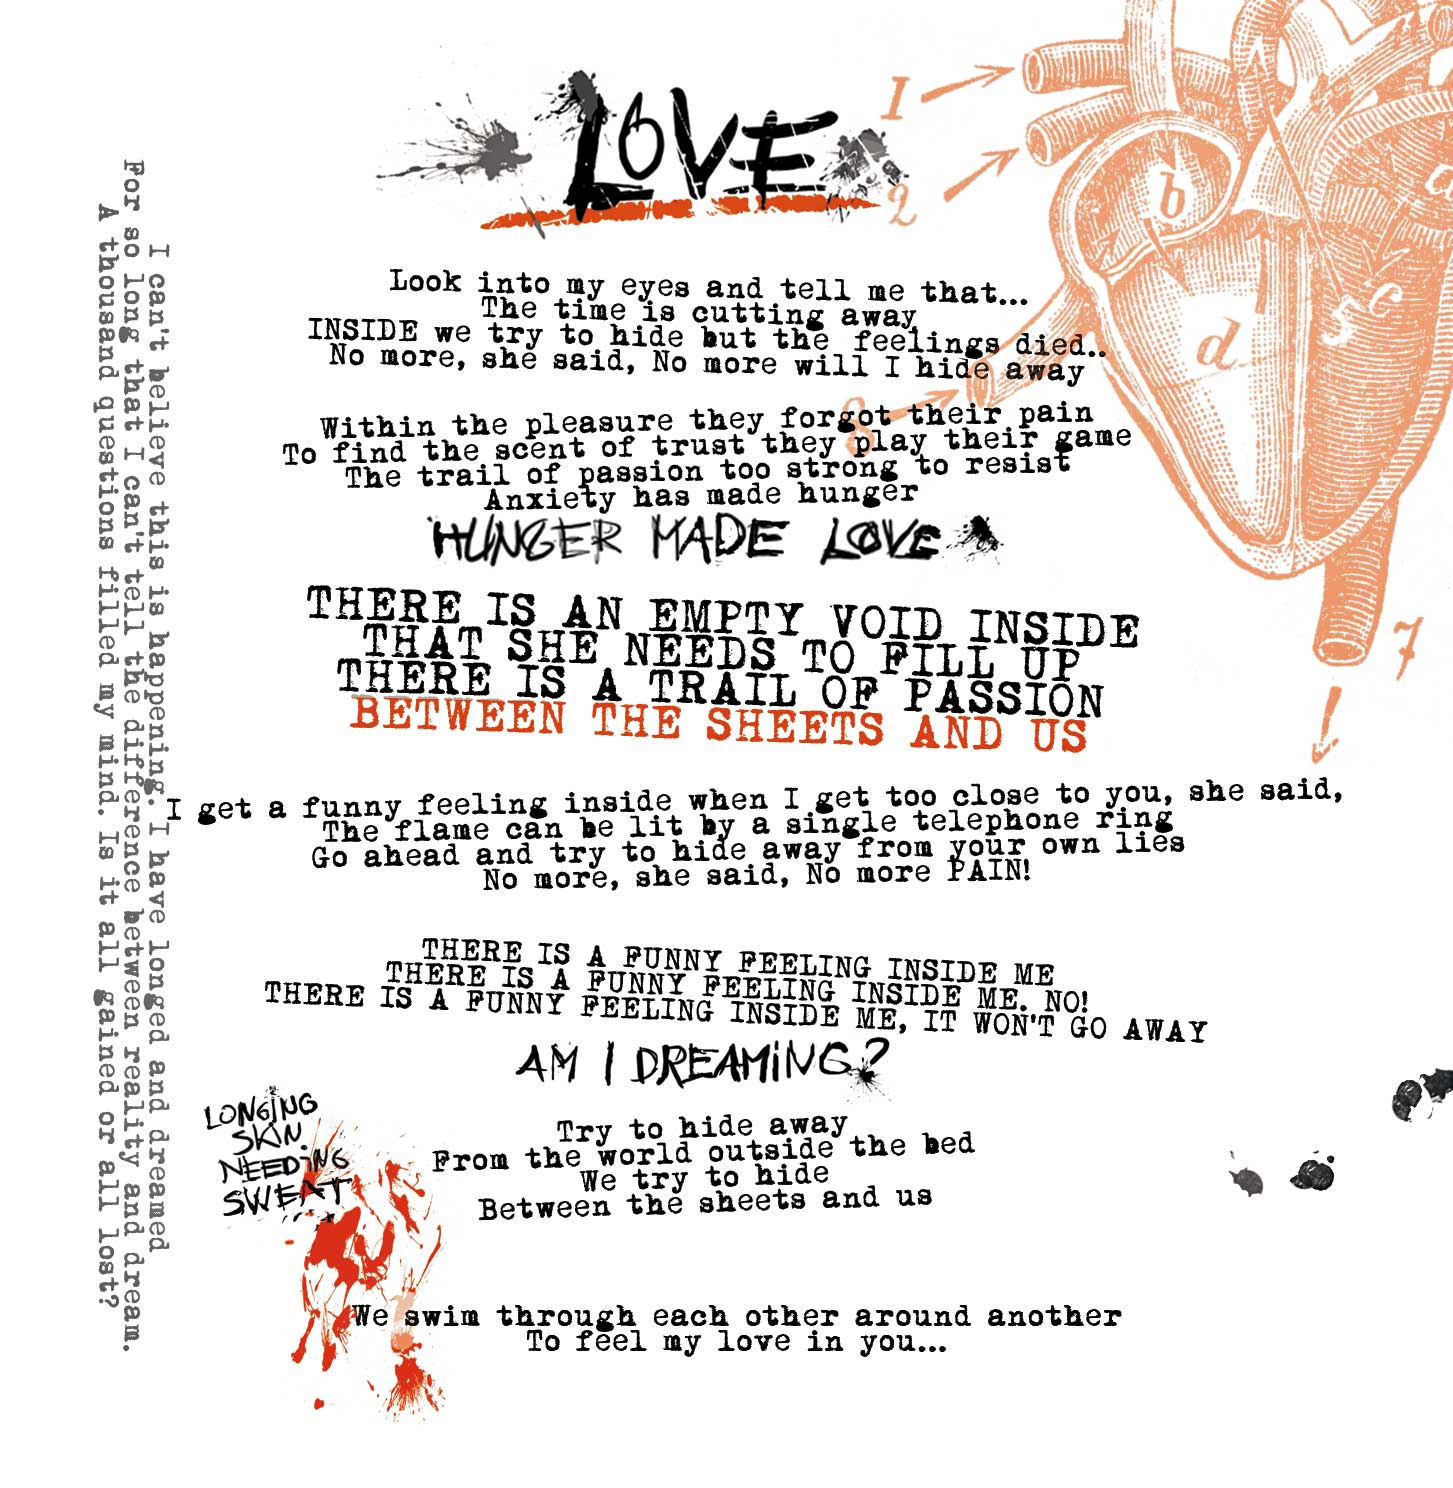 LOVE
1
2
b
a
c
5
d
8
7
Look into my eyes and tell me that...
The time is cutting away
INSIDE we try to hide but the feelings died..
No more, she said, No more will I hide away
Within the pleasure they forgot their pain
To find the scent of trust they play their game
The trail of passion too strong to resist
Anxiety has made hunger
HUNGER MADE LOVE
THERE IS AN EMPTY VOID INSIDE
THAT SHE NEEDS TO FILL UP
THERE IS A TRAIL OF PASSION
BETWEEN THE SHEETS AND US
I get a funny feeling inside when I get too close to you, she said,
The flame can be lit by a single telephone ring
Go ahead and try to hide away from your own lies
No more, she said, No more PAIN!
THERE IS A FUNNY FEELING INSIDE ME
THERE IS A FUNNY FEELING INSIDE ME. NO!
THERE IS A FUNNY FEELING INSIDE ME, IT WON'T GO AWAY
AM I DREAMING?
LONGING
SKIN.
NEEDING
SWEAT
Try to hide away
From the world outside the bed
We try to hide
Between the sheets and us
We swim through each other around another
To feel my love in you...
I can't believe this is happening. I have longed and dreamed
For so long that I can't tell the difference between reality and dream.
A thousand questions filled my mind. Is it all gained or all lost?